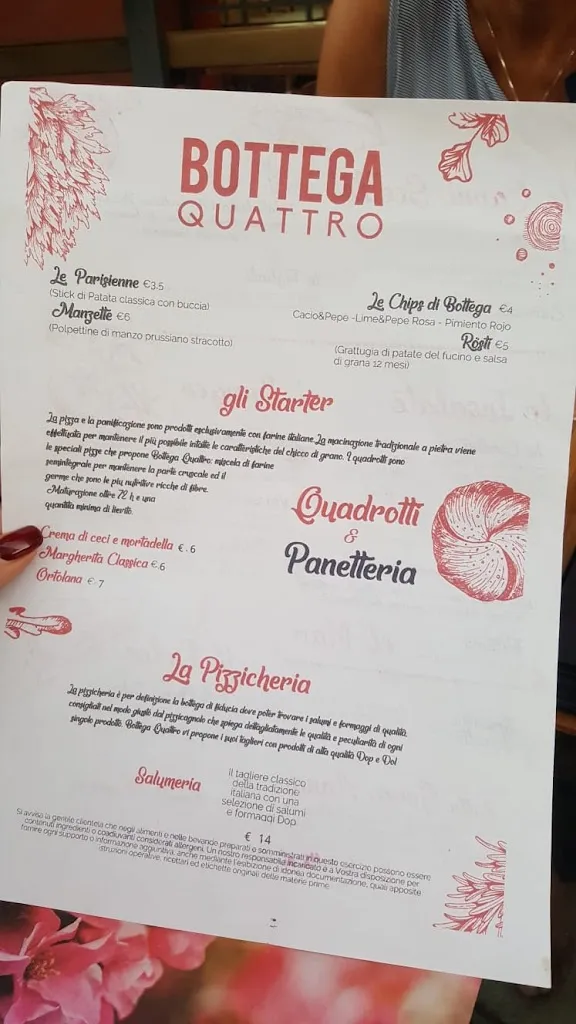 BOTTEGA
QUATTRO
Le Parisienne €3.5
(Stick di Patata classica con buccia)
Manzette €6
(Polpettine di manzo prussiano stracotto)
Le Chips di Bottega €4
Cacio&Pepe -Lime&Pepe Rosa - Pimiento Rojo
Rösti €5
(Grattugia di patate del fucino e salsa
di grana 12 mesi)
gli Starter
La pizza e la panificazione sono prodotti esclusivamente con farine italiane.La macinazione tradizionale a pietra viene
effettuata per mantenere il più possibile intatte le caratteristiche del chicco di grano. I quadrotti sono
le speciali pizze che propone Bottega Quattro: miscela di farine
semintegrale per mantenere la parte cruscale ed il
germe che sono le più nutritive ricche di fibre.
Maturazione oltre 72 h e una
quantità minima di lievito.
Quadrotti
&
Panetteria
Crema di ceci e mortadella €.6
Margherita Classica €.6
Ortolana €.7
La Pizzicheria
La pizzicheria è per definizione la bottega di fiducia dove poter trovare i salumi e formaggi di qualità,
consigliati nel modo giusto dal pizzicagnolo che spiega dettagliatamente le qualità e peculiarità di ogni
singolo prodotto. Bottega Quattro vi propone i suoi taglieri con prodotti di alta qualità Dop e Do!
Salumeria
Il tagliere classico
della tradizione
italiana con una
selezione di salumi
e formaggi Dop
€ 14
Si avvisa la gentile clientela che negli alimenti e nelle bevande preparati e somministrati in questo esercizio possono essere
contenuti ingredienti o coadiuvanti considerati allergeni. Un nostro responsabile incaricato è a Vostra disposizione per
fornire ogni supporto o informazione aggiuntiva, anche mediante l'esibizione di idonea documentazione, quali apposite
istruzioni operative, ricettari ed etichette originali delle materie prime.